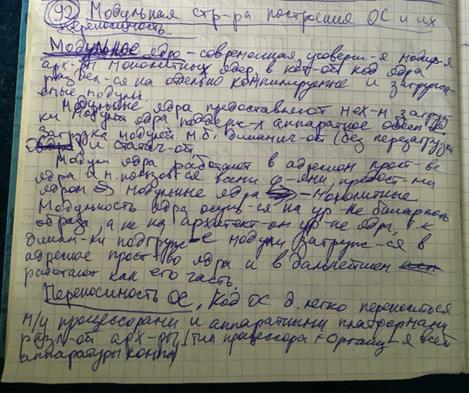 92 Модульная стр-ра построения ОС и их
переносимость.
Модульное ядро - современная усоверш-я модиф-я
арх-ры монолитных ядер в кот-ой код ядра
раздел-ся на отдельно компилируемые и загружа-
емые модули.
Модульные ядра предоставляют мех-м загруз-
ки модул ядра поддерж-х аппаратное обесп
Загрузка модулей м.б. динамич-ой (без перезагрузки
ОС) и статич-ой.
Модули ядра работают в адресном прост-ве
ядра и м. пользов-ся всеми ф-ями, предост-ми
ядром => модульные ядра - монолитные
Модульность ядра осущ-ся на ур-не бинарного
образа, а не на архитект-ом ур-не ядра, т.к.
динам-ки подгруж-е модули, загруж-ся в
адресное прост-во ядра и в дальнейшем
работают как его часть.
Переносимость ОС. Код ОС д. легко переноситься
м/у процессорами и аппаратными платформами
разл-ой арх-ры (тип процессора + организ-я всей
аппаратуры компа)